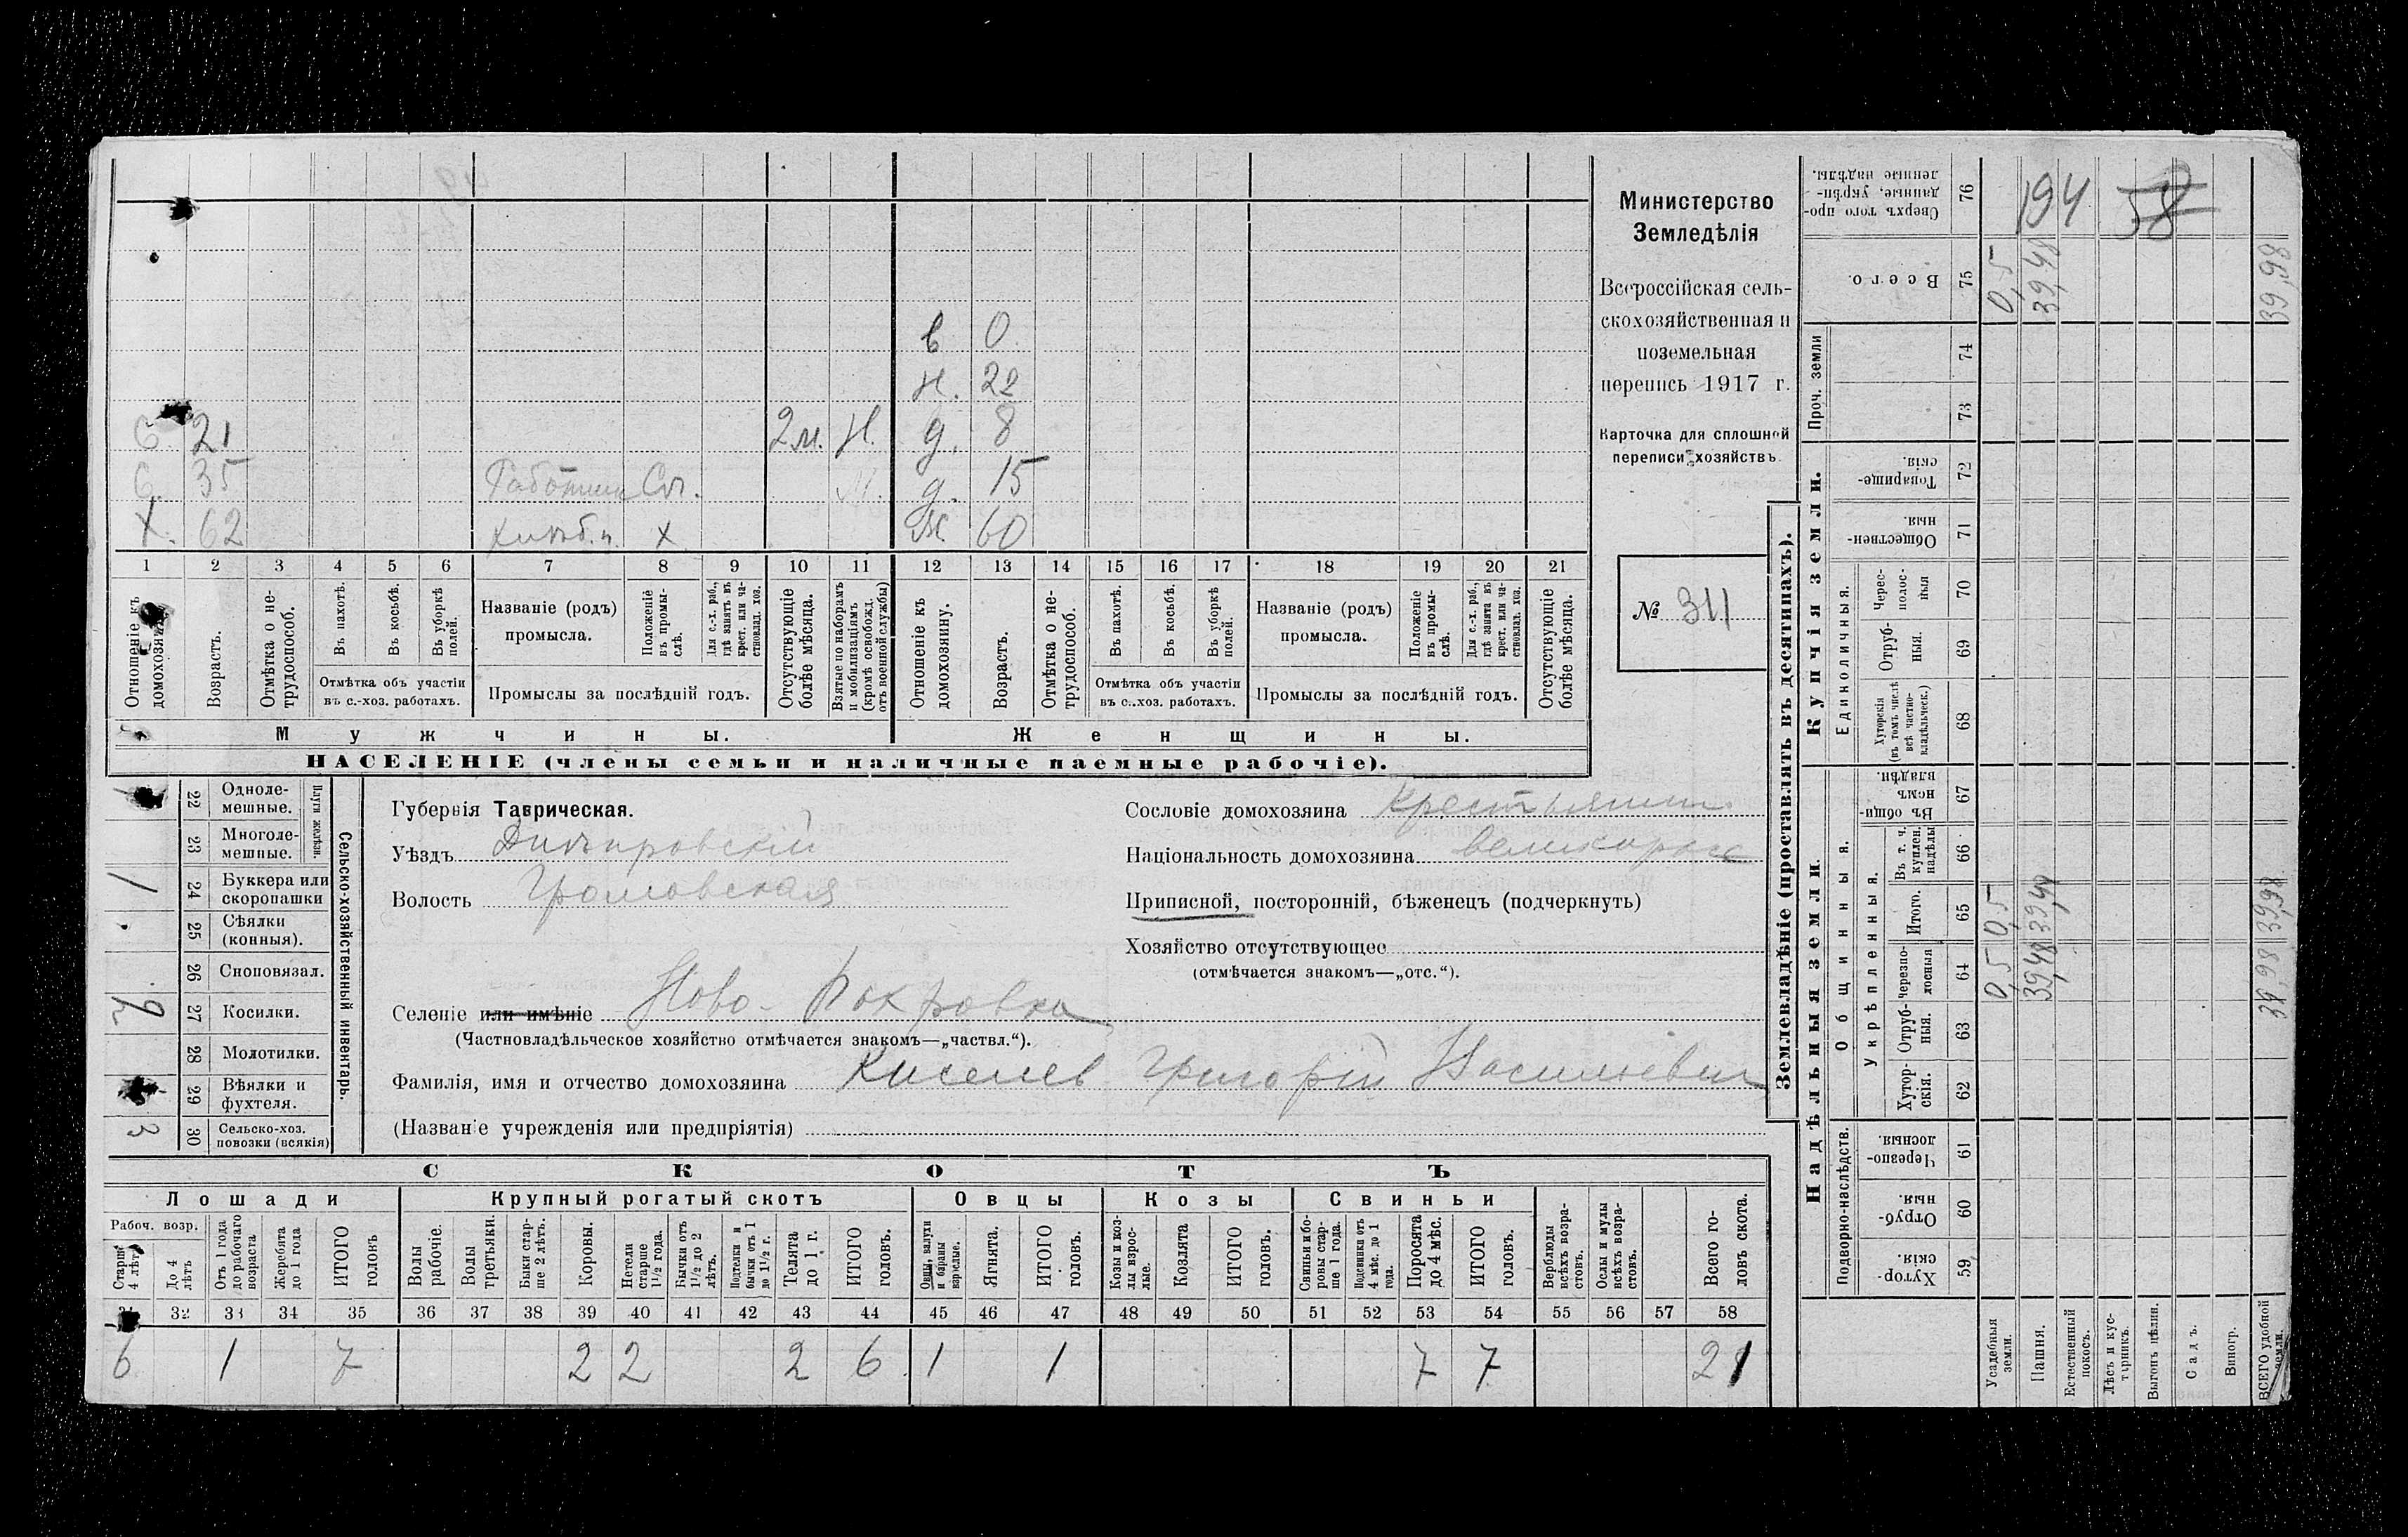 Министерство
Земледѣлія
Всероссійская сель-
скохозяйственная и
поземельная
перепись 1917 г.
Карточка для сплошной
переписи хозяйствъ.
№ 311
в 0
н. 22
С. 21 2м. Н. д. 8
С. 35 Работник Сл. д. 15
Х. 62 хлѣб. х ж 60
1 2 3 4 5 6 7 8 9 10 11 12 13 14 15 16 17 18 19 20 21
Отношеніе къ домохозяину.
Возрастъ.
Отмѣтка о не-трудоспособ.
Въ пахотѣ.
Въ косьбѣ.
Въ уборкѣ полей.
Отмѣтка объ участіи въ с.-хоз. работахъ.
Названіе (родъ) промысла.
Положеніе въ промы-слѣ.
Для с.-х. раб., гдѣ занятъ въ крест. или ча-стновлад. хоз.
Промыслы за послѣдній годъ.
Отсутствующіе болѣе мѣсяца.
Взятые по наборамъ и мобилизаціямъ (кромѣ освобожд. отъ военной службы)
Отношеніе къ домохозяину.
Возрастъ.
Отмѣтка о не-трудоспособ.
Въ пахотѣ.
Въ косьбѣ.
Въ уборкѣ полей.
Отмѣтка объ участіи въ с.-хоз. работахъ.
Названіе (родъ) промысла.
Положеніе въ промы-слѣ.
Для с.-х. раб., гдѣ занята въ крест. или ча-стновлад. хоз.
Промыслы за послѣдній годъ.
Отсутствующіе болѣе мѣсяца.
Мужчины. Женщины.
НАСЕЛЕНІЕ (члены семьи и наличные наемные рабочіе).
Сельско-хозяйственный инвентарь.
Плуги желѣзн.
22 Однолемешные.
23 Многолемешные.
1 24 Буккера или скоропашки
25 Сѣялки (конныя).
26 Сноповязал.
27 Косилки.
28 Молотилки.
29 Вѣялки и фухтеля.
3 30 Сельско-хоз. повозки (всякія)
Губернія Таврическая.
Уѣздъ Днѣпровскій
Волость Громовская
Селеніе или имѣніе Ново-Покровка
(Частновладѣльческое хозяйство отмѣчается знакомъ—„частвл.“).
Фамилія, имя и отчество домохозяина Киселев Григорій Васильевич
(Названіе учрежденія или предпріятія)
Сословіе домохозяина Крестьянин
Національность домохозяина великоросс
Приписной, посторонній, бѣженецъ (подчеркнуть)
Хозяйство отсутствующее
(отмѣчается знакомъ—„отс.“).
СКОТЪ
Лошади Крупный рогатый скотъ Овцы Козы Свиньи
Рабоч. возр.
Старше 4 лѣтъ
До 4 лѣтъ
Отъ 1 года до рабочаго возраста
Жеребята до 1 года
ИТОГО головъ
Волы рабочіе.
Волы третьяки.
Быки стар-ше 2 лѣтъ.
Коровы.
Нетели старше 1½ года.
Бычки отъ 1½ до 2 лѣтъ.
Подтелки и бычки отъ 1 до 1½ г.
Телята до 1 г.
ИТОГО головъ.
Овцы, валухи и бараны взрослые.
Ягнята.
ИТОГО головъ.
Козы и коз-лы взрос-лые.
Козлята
ИТОГО головъ.
Свиньи и бо-ровы стар-ше 1 года.
Подсвинки отъ 4 мѣс. до 1 года.
Поросята до 4 мѣс.
ИТОГО головъ.
Верблюды всѣхъ возра-стовъ.
Ослы и мулы всѣхъ возра-стовъ.
Всего го-ловъ скота.
31 32 33 34 35 36 37 38 39 40 41 42 43 44 45 46 47 48 49 50 51 52 53 54 55 56 57 58
6 1 7 2 2 2 6 1 1 7 7 21
Землевладѣніе (проставлять въ десятинахъ).
Купчія земли.
Надѣльныя земли.
Сверхъ того про-данные, укрѣп-ленные надѣлы. 76 194 58
Всего. 75 0,5 39,48 39,98
Проч. земли 74
73
Товарище-скія. 72
Обществен-ныя. 71
Единоличныя.
Черес-полос-ныя 70
Отруб-ныя. 69
Хуторскія (въ томъ числѣ всѣ частно-владѣльческ.) 68
Общинныя.
Въ общин-номъ владѣн. 67
Укрѣпленныя.
Въ т. ч. куплен. надѣлы 66
Итого. 65 0,5 39,48 39,98
Черезпо-лосныя 64 0,5 39,48 39,98
Отруб-ныя. 63
Хутор-скія. 62
Подворно-наслѣдств.
Черезпо-лосныя. 61
Отруб-ныя. 60
Хутор-скія. 59
Усадебныя земли.
Пашня.
Естественный покосъ.
Лѣсъ и кус-тарникъ.
Выгонъ цѣлин.
Садъ.
Виногр.
ВСЕГО удобной земли.